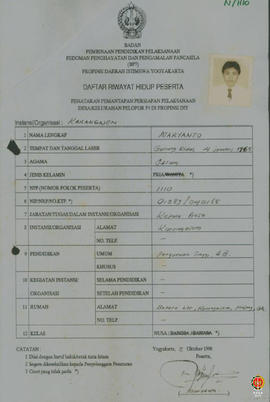 N/1110
BADAN
PEMBINAAN PENDIDIKAN PELAKSANAAN
PEDOMAN PENGHAYATAN DAN PENGAMALAN PANCASILA
(BP7)
PROPINSI DAERAH ISTIMEWA YOGYAKARTA
DAFTAR RIWAYAT HIDUP PESERTA
PENATARAN PEMANTAPAN PERSIAPAN PELAKSANAAN
DESA/KELURAHAN PELOPOR P4 DI PROPINSI DIY
Instansi/Organisasi : KARANGMEN
1 NAMA LENGKAP NARYANTO
2 TEMPAT DAN TANGGAL LAHIR Gunung Kidul,
3 AGAMA Islam
4 JENIS KELAMIN PRIA/WANITA *)
5 NPP (NOMOR POKOK PESERTA) 1110
6 NIP/NRP/NO.KTP *)
7 JABATAN/TUGAS DALAM INSTANSI/ORGANISASI Kepala Desa
8 INSTANSI/ORGANISASI ALAMAT
NO. TELP –
9 PENDIDIKAN UMUM Perguruan Tinggi,
KHUSUS –
10 KEGIATAN INSTANSI SELAMA PENDIDIKAN –
ORGANISASI SETELAH PENDIDIKAN –
11 RUMAH ALAMAT
NO. TELP –
12 KELAS NUSA / BANGSA / BAHASA *)
CATATAN :
1 Diisi dengan huruf balok/cetak tinta hitam
2 Segera dikembalikan kepada Penyelenggara Penataran
3 Coret yang tidak perlu *)
Yogyakarta, Oktober 1996
Peserta,